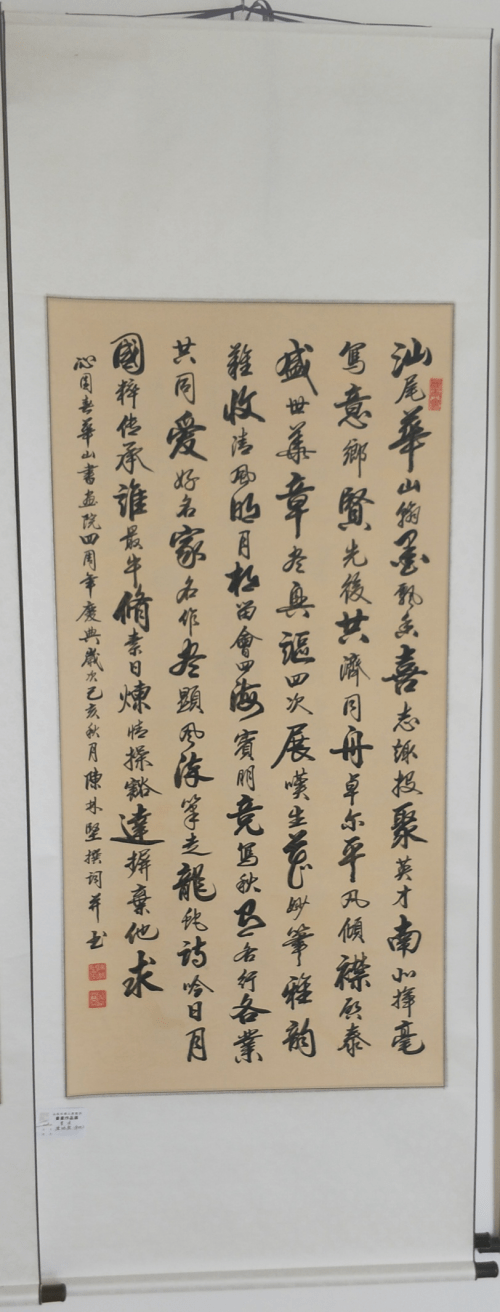 汕尾華山翰墨飘香喜志趣投聚英才南北揮毫
寫意鄉賢先後共濟同舟卓尔平凡傾襟啟泰
盛世華章尽興謳四次展嘆生花妙筆雅韵
難收清风明月相留會四海賓朋竞寫秋各行各業
共同愛好名家名作尽顯风流筆走龍蛇詩吟日月
國粹传承谁最牛脩素日煉情操豁達摒棄他求
沁园春華山書画院四周年慶典歲次己亥秋月陳林堅撰詞并书